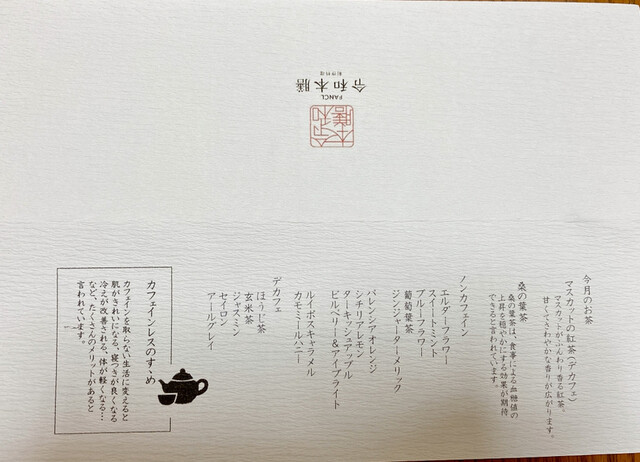 今月のお茶
マスカットの紅茶(デカフェ)
マスカットがふんわり香る紅茶。
甘くてさわやかな香りが広がります。
桑の葉茶
桑の葉茶は、食事による血糖値の
上昇を穏やかにする効果が期待
できると言われています。
ノンカフェイン
エルダーフラワー
スイートミント
ブルーフラワー
葡萄葉茶
ジンジャーターメリック
バレンシアオレンジ
シチリアレモン
ターキッシュアップル
ビルベリー&アイブライト
ルイボスキャラメル
カモミールハニー
デカフェ
ほうじ茶
玄米茶
ジャスミン
セイロン
アールグレイ
カフェインレスのすゝめ
カフェインを取らない生活に変えると
肌がきれいになる、寝つきが良くなる
冷えが改善される、体が軽くなる…
など、たくさんのメリットがあると
言われています。
令和本膳
創作料理
FANCL
令和本膳